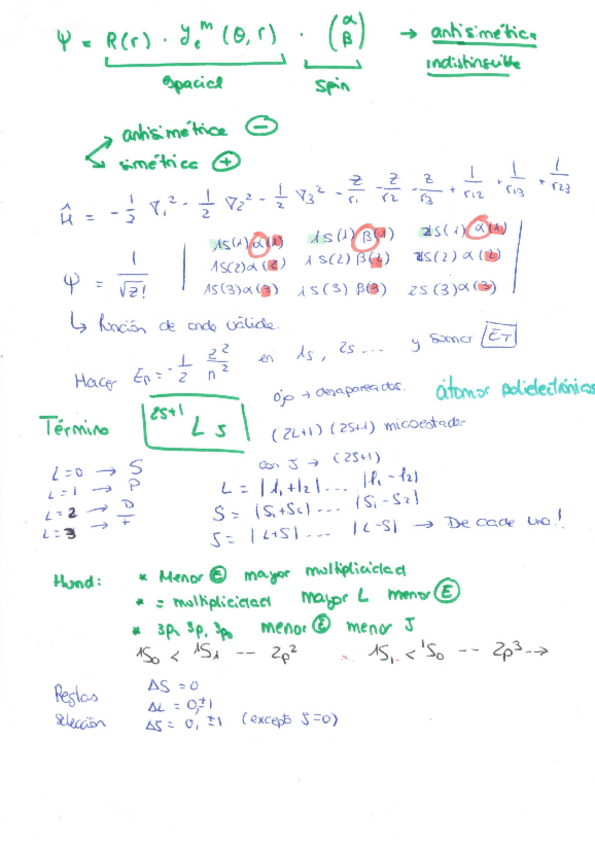 Ψ = R(r) · Yₑᵐ (θ, r) · (α β) → antisimétrica
indistinguible
espacial spin
antisimétrica ⊖
simétrica ⊕
Ĥ = - 1/2 ∇₁² - 1/2 ∇₂² - 1/2 ∇₃² - Z/r₁ - Z/r₂ - Z/r₃ + 1/r₁₂ + 1/r₁₃ + 1/r₂₃
1S(1)α(1) 1S(1)β(1) 2S(1)α(1)
Ψ = 1/√Z! 1S(2)α(2) 1S(2)β(2) 2S(2)α(2)
1S(3)α(3) 1S(3)β(3) 2S(3)α(3)
↳ función de onda válida.
Hacer Eₙ = - 1/2 Z²/n² en 1s, 2s ... y sumar E_T
ojo → desapareados. átomos polielectrónicos
Término ²ˢ⁺¹L s (2L+1)(2S+1) microestados
con J → (2S+1)
L=0 → S
L=1 → P L = |l₁+l₂| ... |l₁-l₂|
L=2 → D S = |S₁+S₂| ... |S₁-S₂|
L=3 → F S = |L+S| ... |L-S| → De cada uno!
Hund: * Menor E mayor multiplicidad
* = multiplicidad mayor L menor E
* 3p, 3p, 3p₀ menor E menor J
1S₀ < 1S₁ -- 2p² 1S₁ < ¹S₀ -- 2p³ →
Reglas ΔS = 0
ΔL = 0,±1
Selección ΔS = 0, ±1 (excepto S=0)